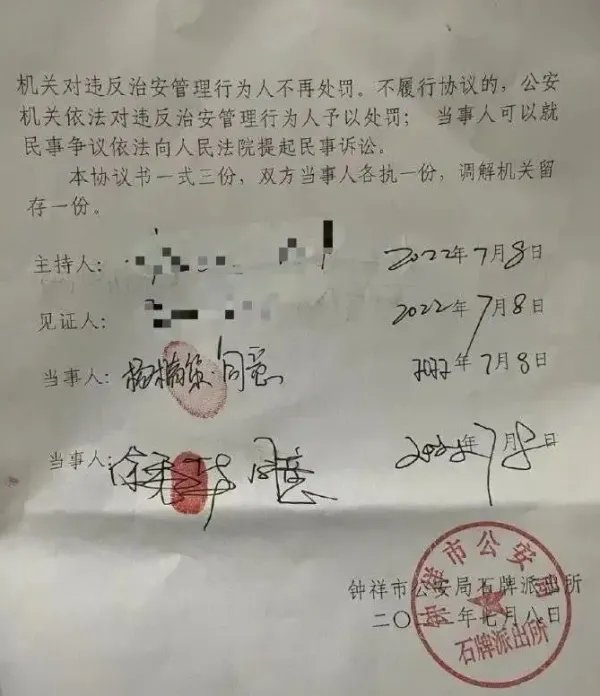 机关对违反治安管理行为人不再处罚。不履行协议的，公安
机关依法对违反治安管理行为人予以处罚； 当事人可以就
民事争议依法向人民法院提起民事诉讼。
本协议书一式三份，双方当事人各执一份，调解机关留
存一份。
主持人： 2022年7月8日
见证人： 2022年7月8日
当事人： 同意 2022年7月8日
当事人： 同意 2022年7月8日
钟祥市公安局石牌派出所
二〇二二年七月八日
钟祥市公安局
石牌派出所